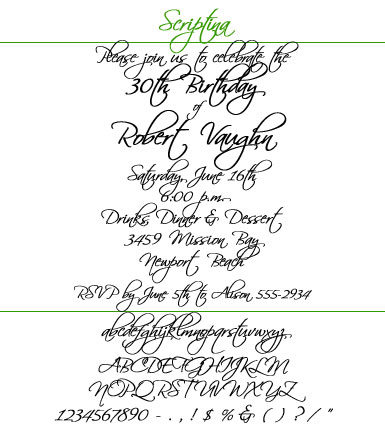 Scriptina
Please join us to celebrate the
30th Birthday
of
Robert Vaughn
Saturday, June 16th
6:00 p.m.
Drinks, Dinner & Dessert
3459 Mission Bay
Newport Beach
RSVP by June 5th to Alison 555-2934
abcdefghijklmnopqrstuvwxyz
ABCDEFGHIJKLM
NOPQRSTUVWXYZ
1234567890 - . , ! $ % & ( ) ? / "